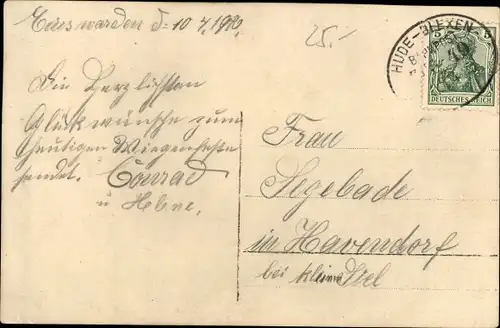 d. 10
25.-
HUDE-BLEXEN
DEUTSCHES REICH
Die Herzlichsten
Glückwünsche zum
heutigen Wiegenfeste
sendet. Conrad
u Helene.
Frau
Segebade
in Havendorf
bei kleine Siel